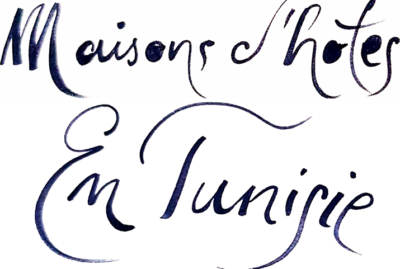 Maisons d'hotes
En Tunisie